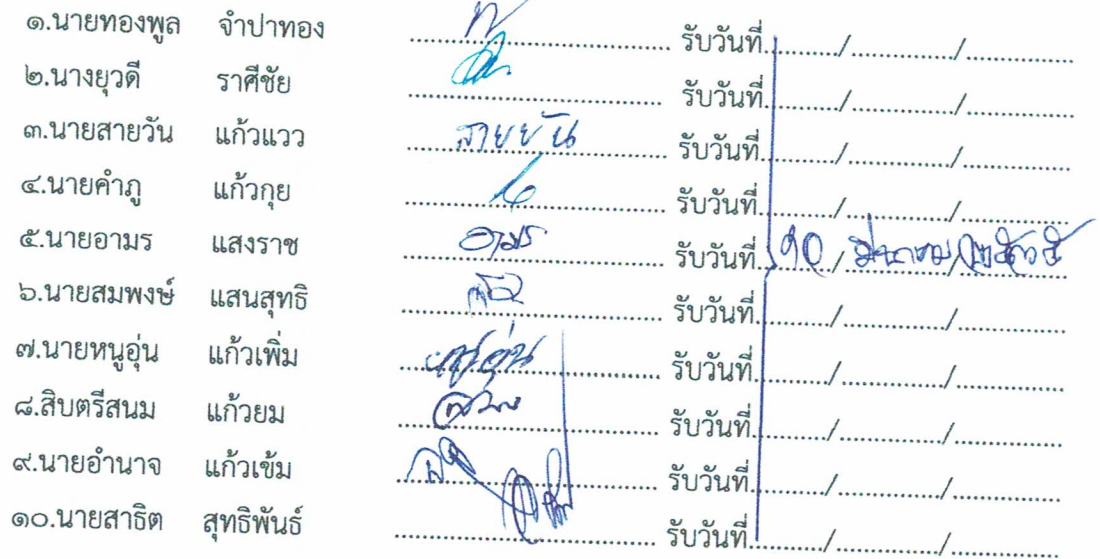 ๑.นายทองพูล จำปาทอง ........................ รับวันที่............/................/................
๒.นางยุวดี ราศีชัย ........................ รับวันที่............/................/................
๓.นายสายวัน แก้วแวว สายยัน รับวันที่............/................/................
๔.นายคำภู แก้วกุย ........................ รับวันที่............/................/................
๕.นายอามร แสงราช อามร รับวันที่ ๑๐ / มีนาคม /
๖.นายสมพงษ์ แสนสุทธิ ........................ รับวันที่............/................/................
๗.นายหนูอุ่น แก้วเพิ่ม หนูอุ่น รับวันที่............/................/................
๘.สิบตรีสนม แก้วยม ........................ รับวันที่............/................/................
๙.นายอำนาจ แก้วเข้ม ........................ รับวันที่............/................/................
๑๐.นายสาธิต สุทธิพันธ์ ........................ รับวันที่............/................/................